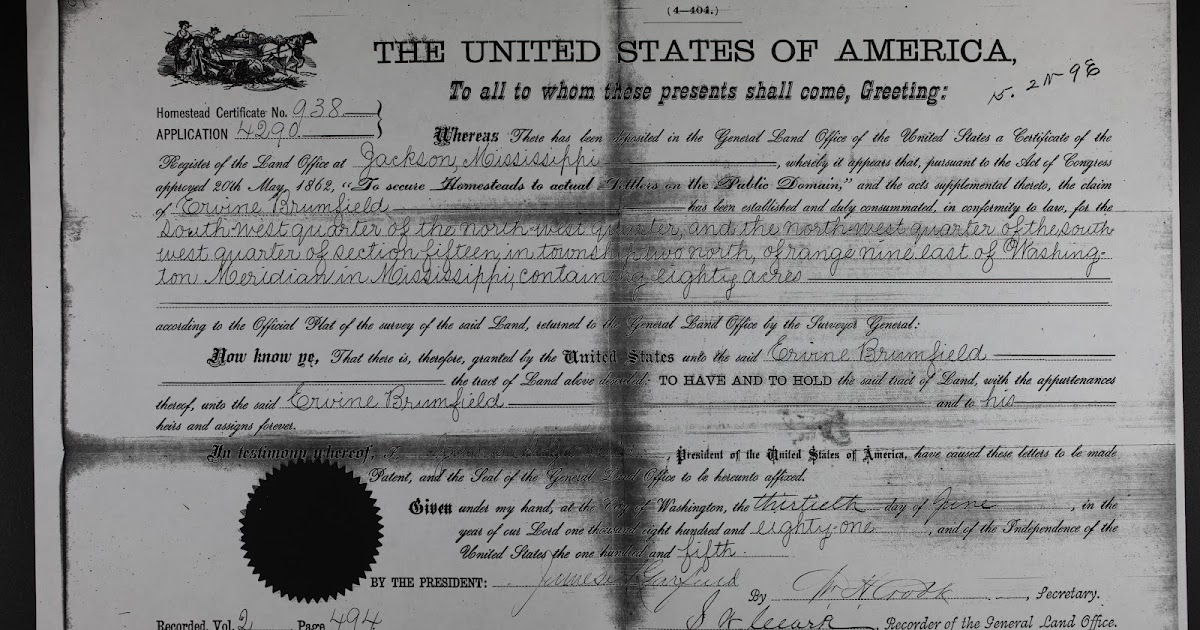 (4—404.)
THE UNITED STATES OF AMERICA,
To all to whom these presents shall come, Greeting:
15. 2N 9E
Homestead Certificate No. 938
APPLICATION 4290
Whereas There has been deposited in the General Land Office of the United States a Certificate of the
Register of the Land Office at Jackson, Mississippi, whereby it appears that, pursuant to the Act of Congress
approved 20th May, 1862, "To secure Homesteads to actual Settlers on the Public Domain," and the acts supplemental thereto, the claim
of Ervine Brumfield has been established and duly consummated, in conformity to law, for the
South-west quarter of the north-west quarter, and the north-west quarter of the south
west quarter of section fifteen, in township two north, of range nine east of Washing-
ton Meridian in Mississippi, containing eighty acres
according to the Official Plat of the survey of the said Land, returned to the General Land Office by the Surveyor General:
Now know ye, That there is, therefore, granted by the United States unto the said Ervine Brumfield
the tract of Land above described: TO HAVE AND TO HOLD the said tract of Land, with the appurtenances
thereof, unto the said Ervine Brumfield and to his
heirs and assigns forever.
In testimony whereof, I, , President of the United States of America, have caused these letters to be made
Patent, and the Seal of the General Land Office to be hereunto affixed.
Given under my hand, at the City of Washington, the thirtieth day of June, in the
year of our Lord one thousand eight hundred and eighty-one, and of the Independence of the
United States the one hundred and fifth.
BY THE PRESIDENT: James Garfield
By W. H. Crook, Secretary.
Recorded, Vol. 2 Page 494
S. W. Clark, Recorder of the General Land Office.